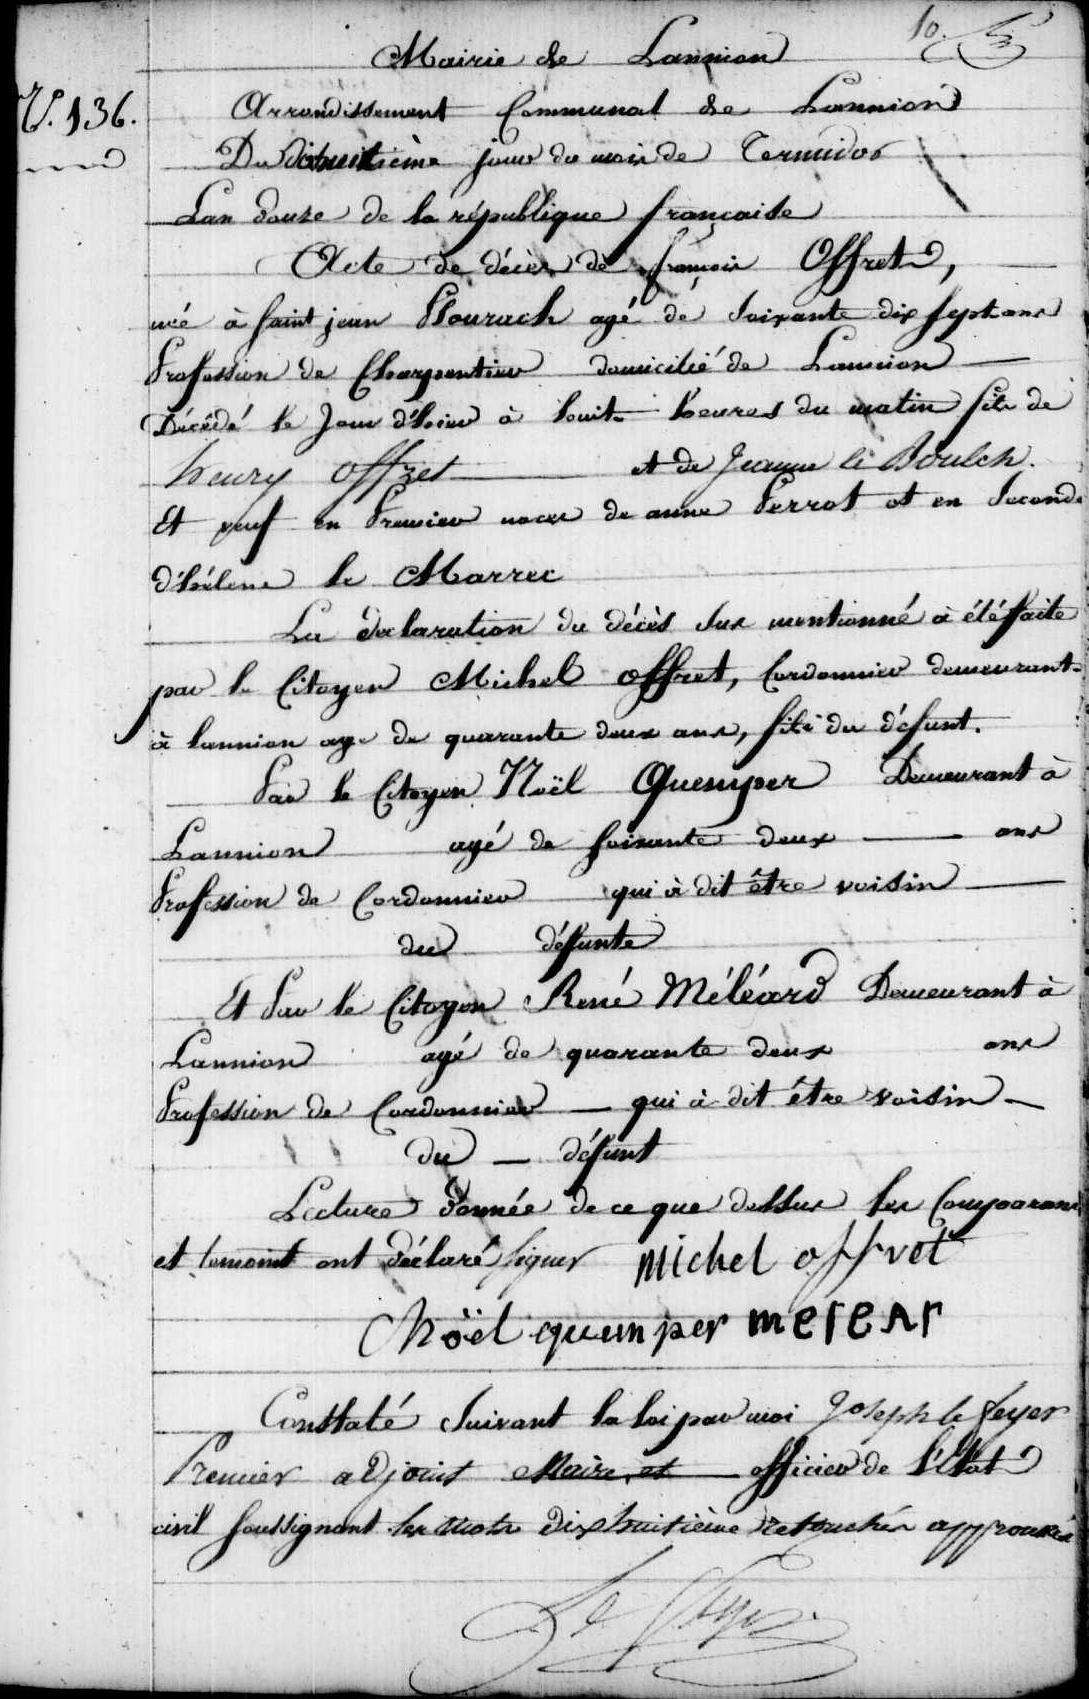 10.
Mairie de Lannion
N. 136.
Arrondissement Communal de Lannion
Du dixhuitième jour du mois de Termidor
Lan douze de la république française
Acte de décès de françois Offret,
né à Saint jean Plourach agé de Soixante dix sept ans
Profession de Charpentier domicilié de Lannion
Décédé le Jour d'hier à huit heures du matin fils de
henry offret et de Jeanne le Boulch.
Et veuf en Premier noces de anne Perrot et en Seconde
d'hélene le Marrec
La declaration du décès Sus mentionné à été faite
par le Citoyen Michel offret, Cordonnier demeurant
à lannion age de quarante deux ans, fils du défunt.
Par le Citoyen Noël Quemper Demeurant à
Lannion agé de Soixante deux ans
Profession de Cordonnier qui à dit être voisin
du défunte
Et Par le Citoyen René Méléard Demeurant à
Lannion agé de quarante deux ans
Profession de Cordonnier qui à dit être voisin
du défunt
Lecture donnée de ce que dessus les Comparans
et temoint ont déclaré signer Michel offret
Noël quemper melear
Constaté Suivant la loi par moi Joseph le feyer
Premier adjoint Maire et officier de l'état
civil Soussignant les mots dixhuitième retouchés approuvés